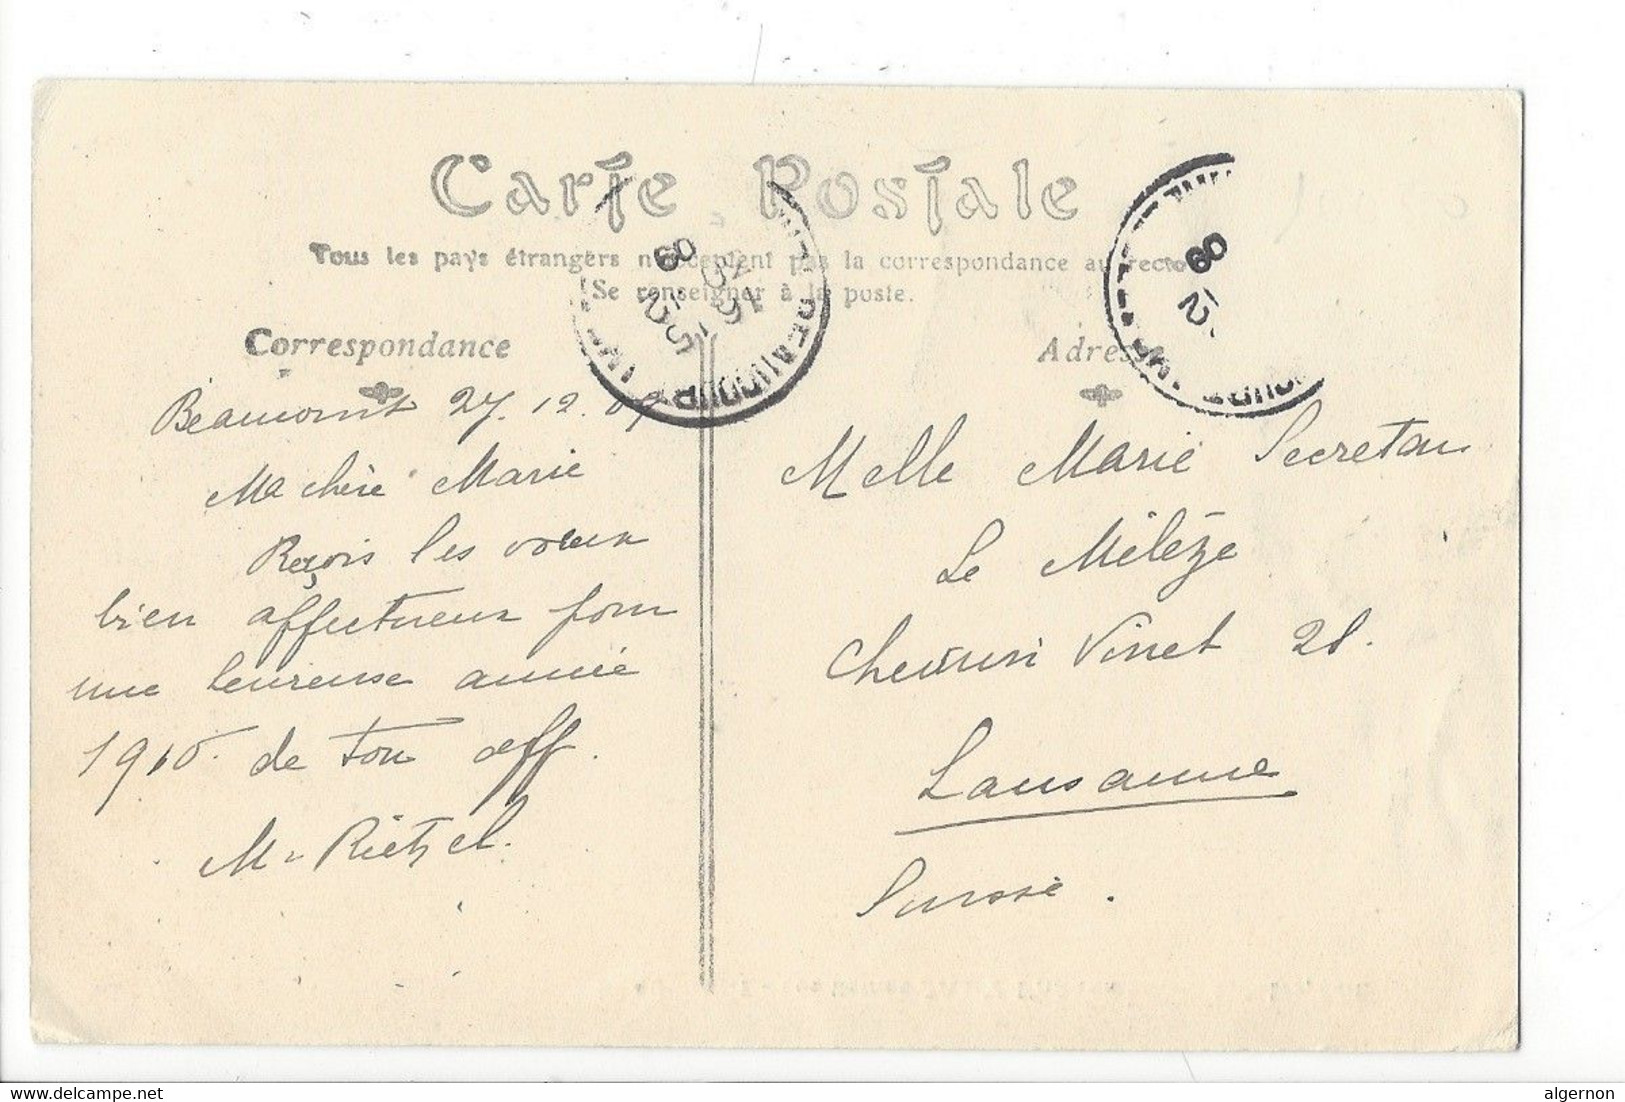 Carte Postale
Tous les pays étrangers n'acceptent pas la correspondance au recto
Se renseigner à la poste.
Correspondance
Adresse
Beaumont 27.12.09
Ma chère Marie
Reçois les voeux
bien affectueux pour
une heureuse année
1910. de ton aff.
M. Rietzel.
Melle Marie Secretan
Le Mélèze
Chemin Vinet 28.
Lausanne
Suisse.
delcampe.net
algernon